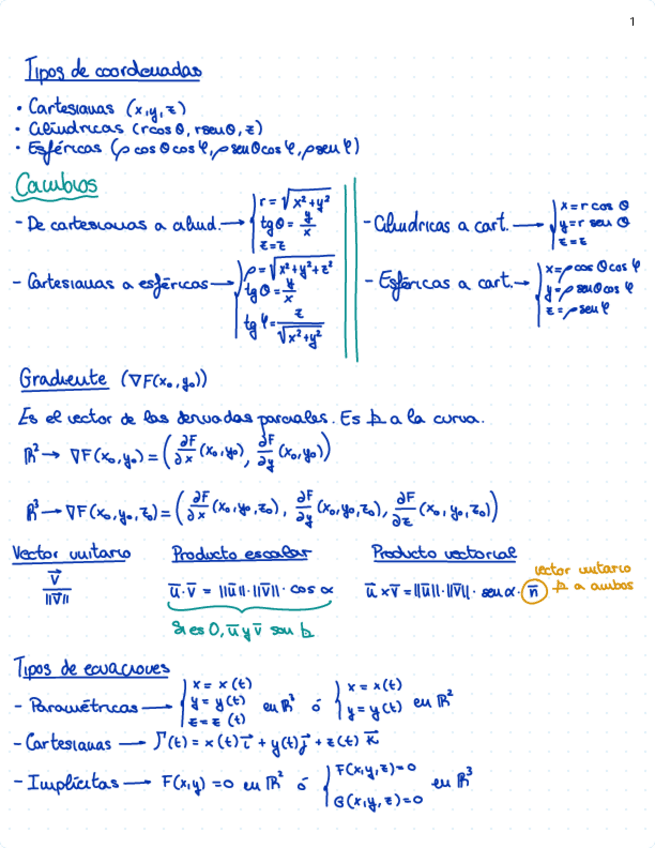 1
Tipos de coordenadas
• Cartesianas (x,y,z)
• Cilíndricas (rcosθ, rsenθ, z)
• Esféricas (ρ cosθcosφ, ρ senθcosφ, ρsenφ)
Cambios
- De cartesianas a cilind. → { r = √(x²+y²)
tgθ = y/x
z=z
- Cilíndricas a cart. → { x = r cos θ
y = r sen θ
z = z
- Cartesianas a esféricas → { ρ = √(x²+y²+z²)
tgθ = y/x
tgφ = z/√(x²+y²)
- Esféricas a cart. → { x=ρ cos θ cos φ
y=ρ senθcos φ
z = ρ sen φ
Gradiente (∇F(x₀,y₀))
Es el vector de las derivadas parciales. Es ⊥ a la curva.
ℝ² → ∇F(x₀,y₀) = (∂F/∂x (x₀,y₀), ∂F/∂y (x₀,y₀))
ℝ³ → ∇F(x₀,y₀,z₀) = (∂F/∂x (x₀,y₀,z₀), ∂F/∂y (x₀,y₀,z₀), ∂F/∂z (x₀,y₀,z₀))
Vector unitario
v⃗/||v⃗||
Producto escalar
ū·v̄ = ||ū||·||v̄||· cos α
Si es 0, ū y v̄ son ⊥
Producto vectorial
ū x v̄ = ||ū||·||v̄||· senα· n̄
vector unitario
⊥ a ambos
Tipos de ecuaciones
- Paramétricas → { x = x(t)
y = y(t)
z = z(t) en ℝ³ ó { x = x(t)
y = y(t) en ℝ²
- Cartesianas → r⃗(t) = x(t) i⃗ + y(t) j⃗ + z(t) k⃗
- Implícitas → F(x,y) = 0 en ℝ² ó { F(x,y,z)=0
G(x,y,z)=0 en ℝ³